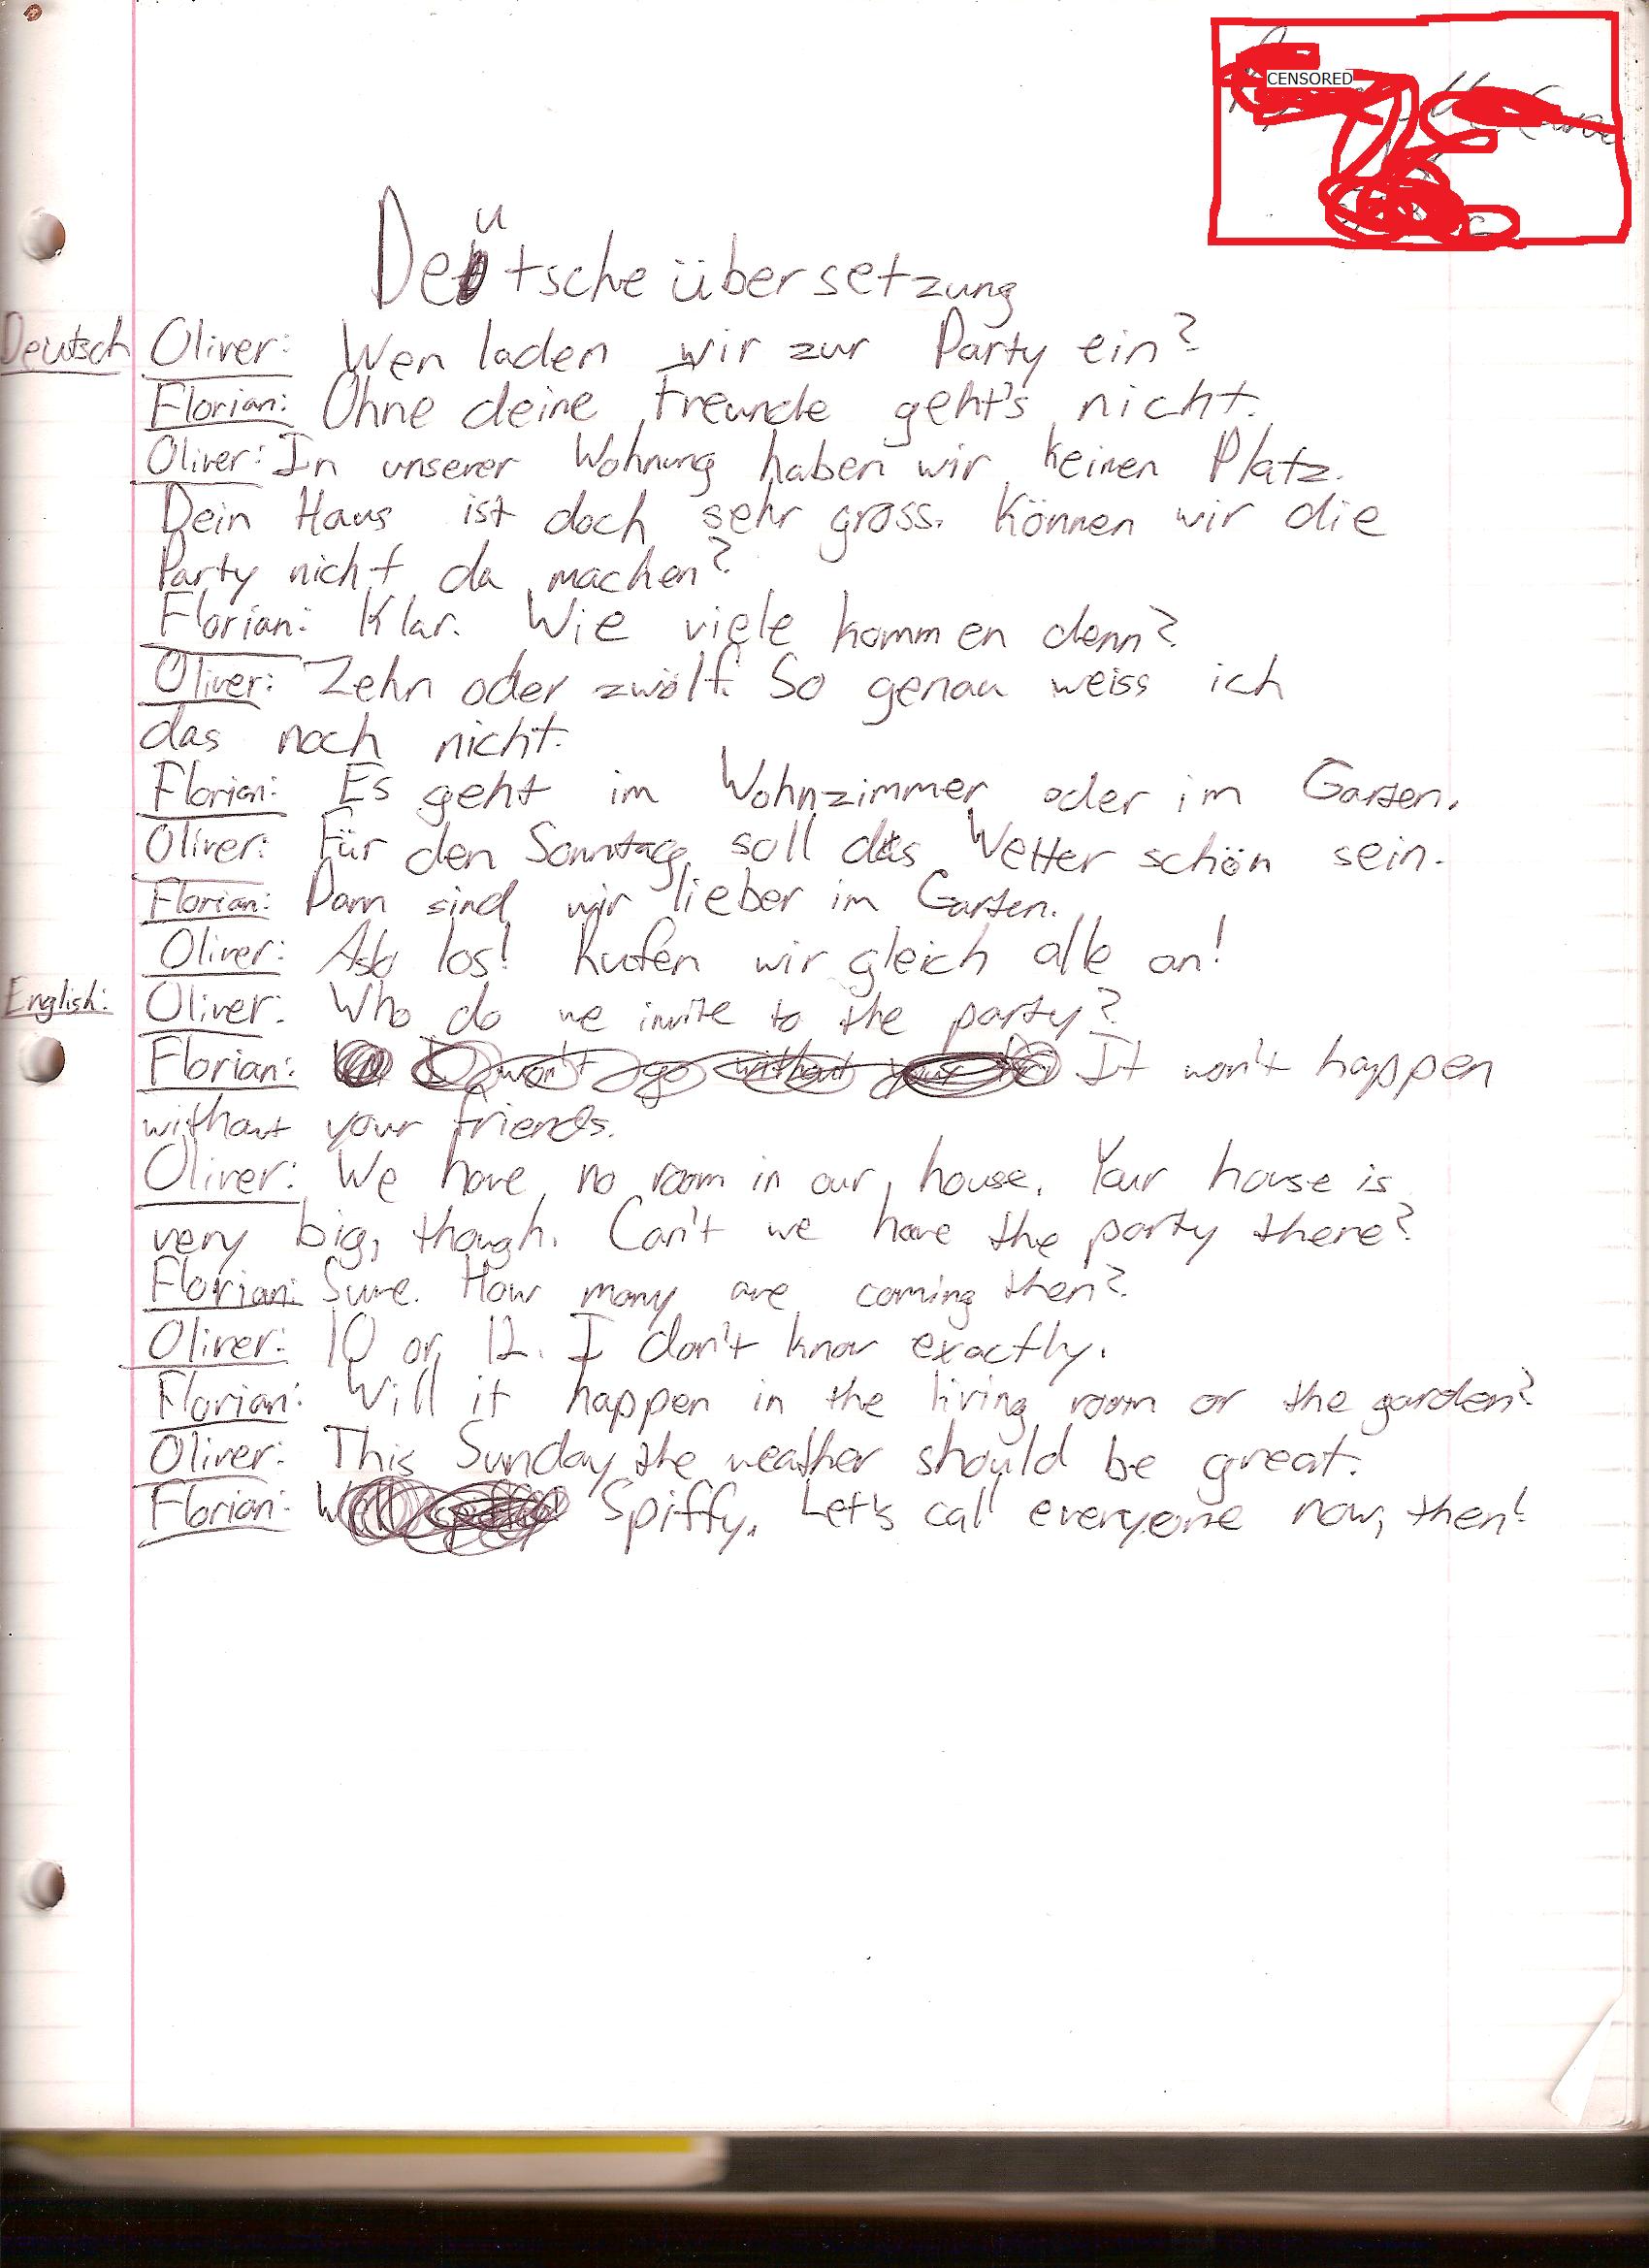 CENSORED
Deutsche übersetzung
Deutsch Oliver: Wen laden wir zur Party ein?
Florian: Ohne deine Freunde geht's nicht.
Oliver: In unserer Wohnung haben wir keinen Platz.
Dein Haus ist doch sehr gross. Können wir die
Party nicht da machen?
Florian: Klar. Wie viele kommen denn?
Oliver: Zehn oder zwölf. So genau weiss ich
das noch nicht.
Florian: Es geht im Wohnzimmer oder im Garten.
Oliver: Für den Sonntag soll das Wetter schön sein.
Florian: Dann sind wir lieber im Garten.
Oliver: Also los! Rufen wir gleich alle an!
English: Oliver: Who do we invite to the party?
Florian: It won't happen
without your friends.
Oliver: We have no room in our house. Your house is
very big, though. Can't we have the party there?
Florian: Sure. How many are coming then?
Oliver: 10 or 12. I don't know exactly.
Florian: Will it happen in the living room or the garden?
Oliver: This Sunday the weather should be great.
Florian: Spiffy. Let's call everyone now, then!